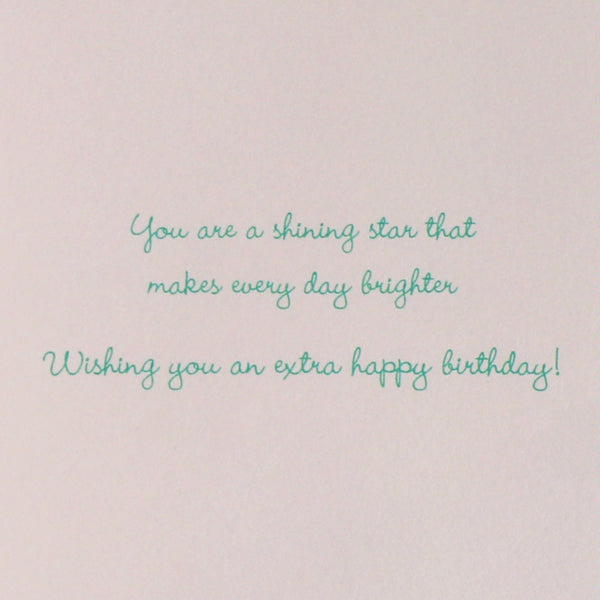 You are a shining star that
makes every day brighter
Wishing you an extra happy birthday!